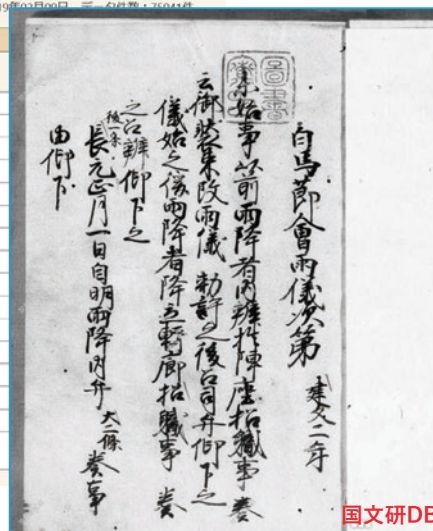 白馬節會雨儀次第 建久二年
事始事以前雨降者内辨於陣座招職事奏
云御装束改雨儀 勅許之後召司弁仰下之
儀始之後雨降者降立軒廊招職事 奏
之召辨仰下之
後一条
長元正月一日自明雨降内弁 大二條 奏事
由仰下
国文研DB